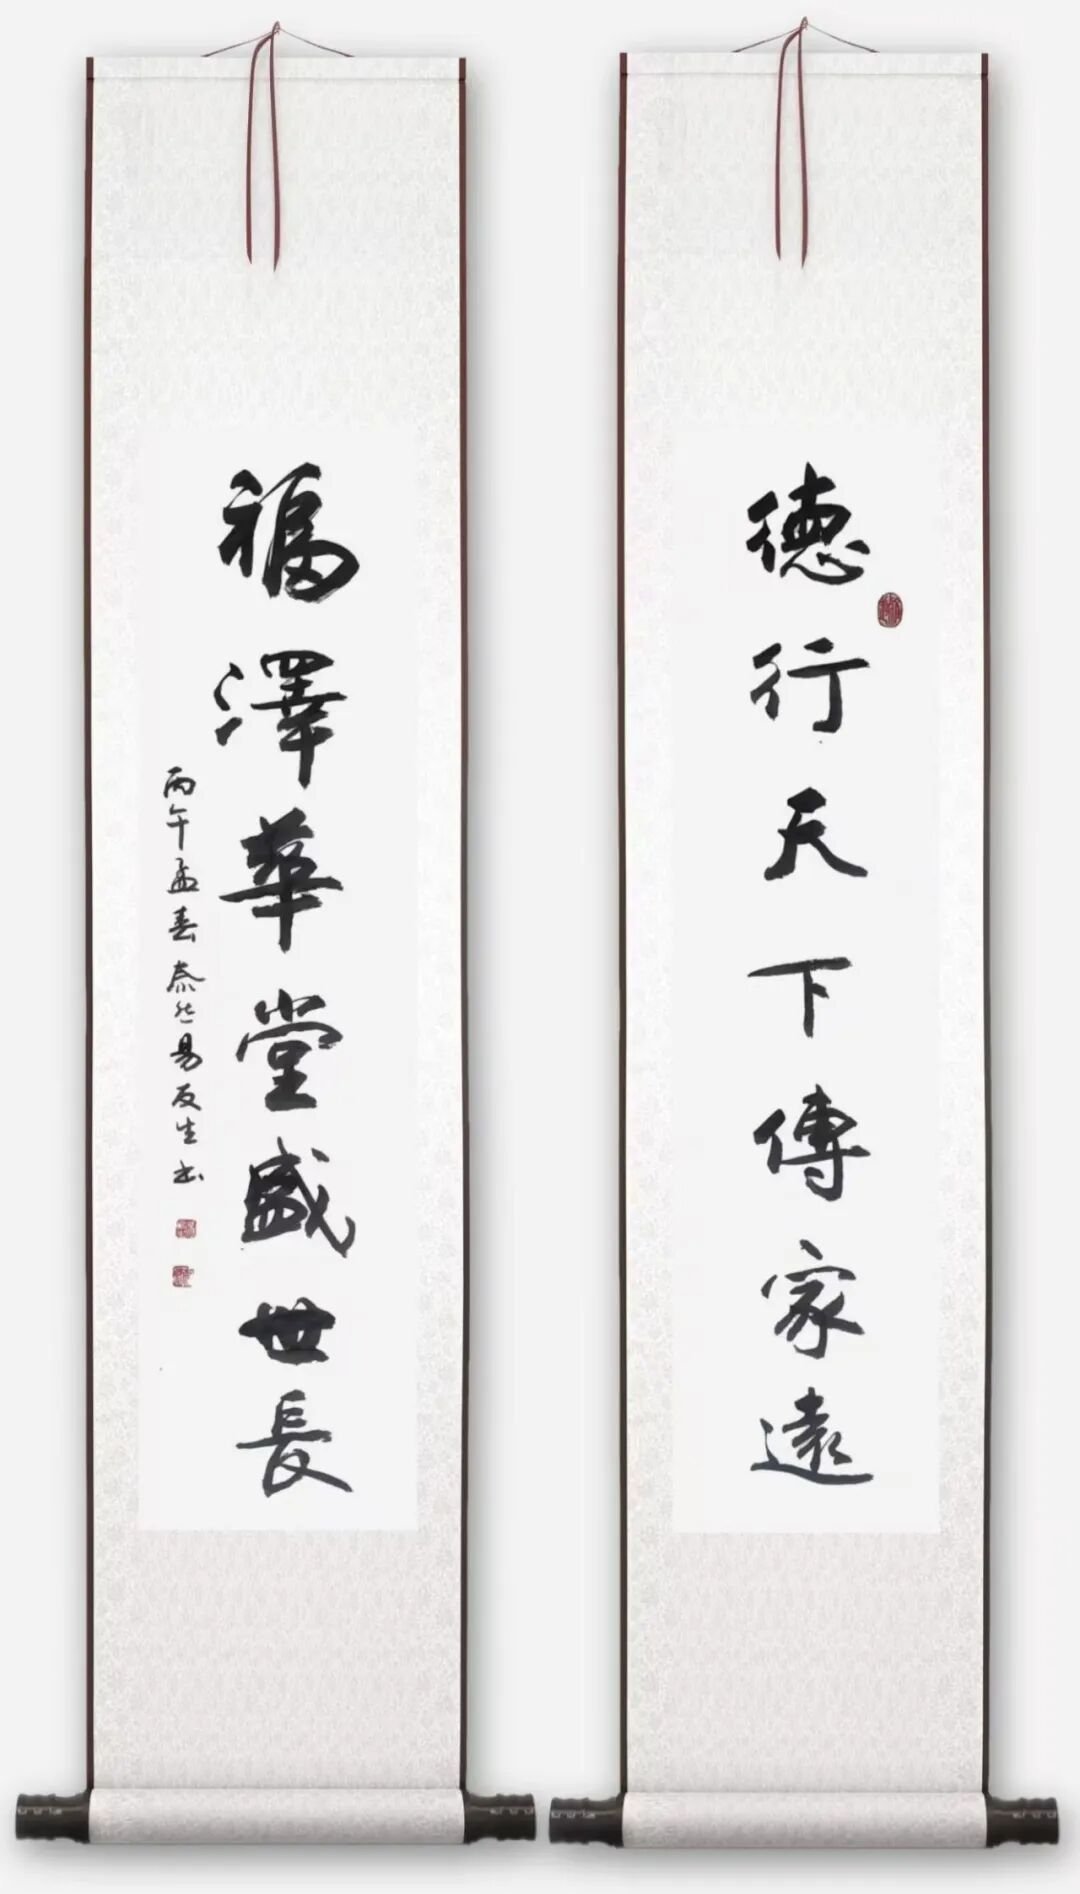 德行天下傳家遠
福澤華堂盛世長
丙午孟春泰然易友生书